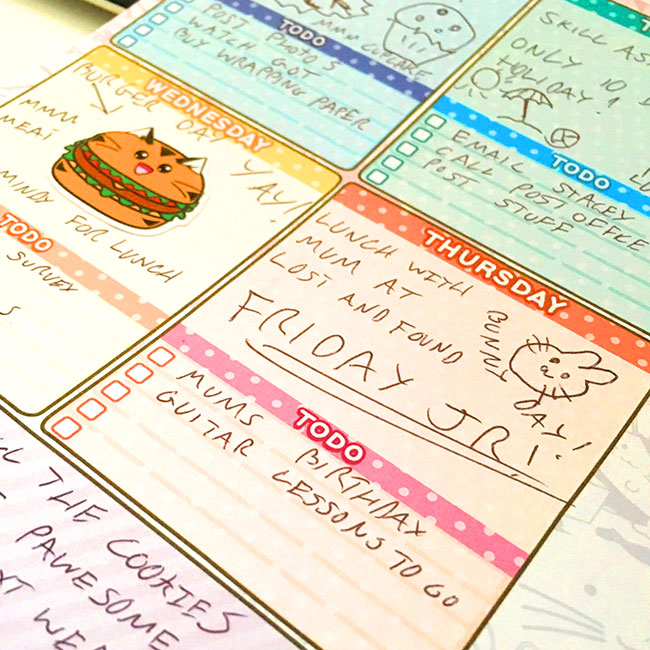 MMM CUPCAKE
TODO
POST PHOTOS
WATCH GOT
BUY WRAPPING PAPER
SKILL
ONLY 10
HOLIDAY!
TODO
EMAIL STACEY
CALL POST OFFICE
POST STUFF
WEDNESDAY
BURGER DAY
YAY!
MMM
MEAT
MINDY FOR LUNCH
TODO
SURVEY
THURSDAY
LUNCH WITH
MUM AT
LOST AND FOUND
BUNNY
DAY!
FRIDAY JR!
TODO
MUMS BIRTHDAY
GUITAR LESSONS TO GO
THE COOKIES
PAWESOME